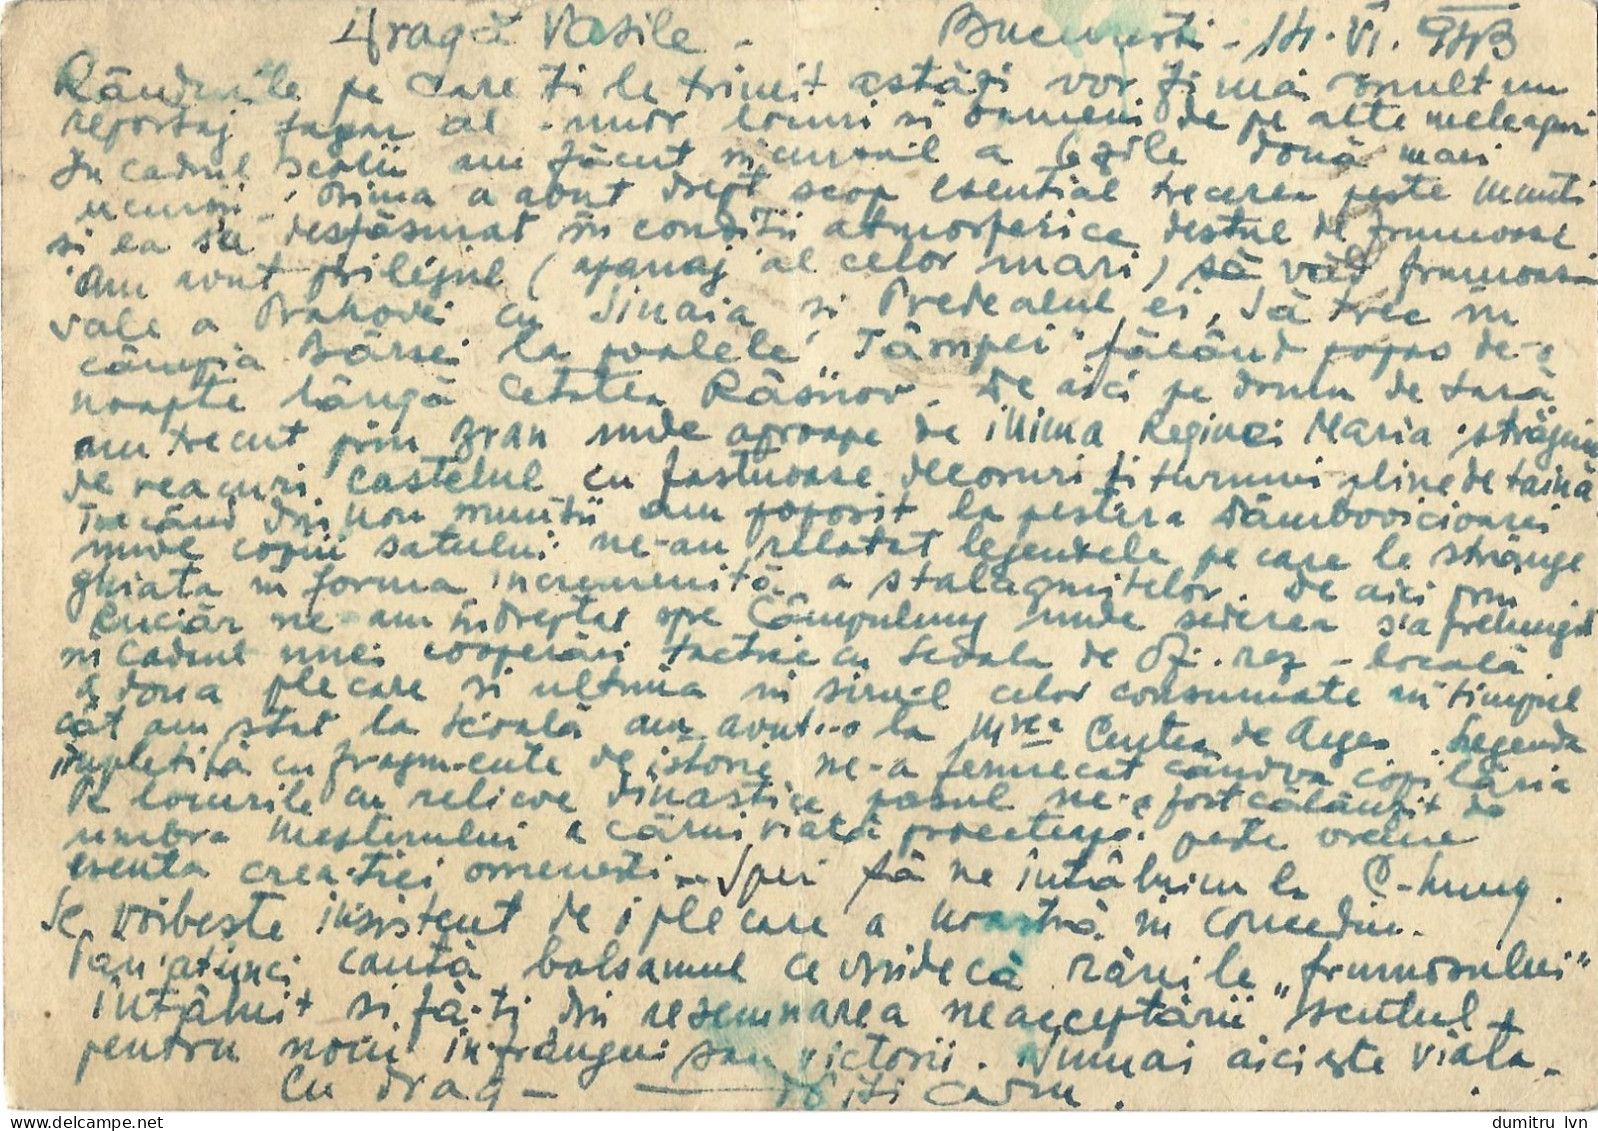 Dragă Vasile - București - 14.VI.943
Rândurile pe care ți le trimit astăzi vor fi mai mult un
reportaj fugar al unor locuri si oameni de pe alte meleaguri
In cadrul scolii am făcut in cursul a 6 zile două mari
excursii. Prima a avut drept scop esential trecerea peste munti
si ea sa desfăsurat în conditii atmosferice destul de frumoase.
Am avut prilejul (apanaj al celor mari) să văd frumoasa
vale a Prahovei cu Sinaia si Predealul ei, să trec în
câmpia Bârsei la poalele "Tâmpei" făcând popas de-o
noapte lângă Cetatea Râsnov. De aici pe drum de tară
am trecut prin Bran unde aproape de inima Reginei Maria străjuia
de veacuri castelul cu fastuoase decoruri si turnuri pline de taină
Trecând din nou muntii am poposit la pestera Dâmbovicioarei
unde copiii satului ne-au relatat legendele pe care le strânge
ghiata in forma incremenită a stalagmitelor. De aici prin
Rucăr ne-am indreptat spre Câmpulung unde sederea s'a prelungit
in cadrul unei cooperări tactice cu Scoala de Of. rez - locală
a doua plecare si ultima in sirul celor consumate in timpul
cât am stat la scoală am avut-o la Mrea Curtea de Arges. Legenda
impletită cu fragmente de istorie ne-a fermecat cândva copilăria
Pe locurile cu relicve dinastice pasul ne-a fost călăuzit de
umbra Mesterului a cărui viată proectează peste vreme
esenta creatiei omenesti - Sper să ne întâlnim la C-lung.
Se vorbeste insistent de o plecare a noastră in concediu.
Pan'atunci caută balsamul ce vindecă rănile "frumosului"
întâlnit si fă-ti din resemnarea neacceptării scutul
pentru noui infrângeri sau victorii. Numai aici este viata -
Cu drag -